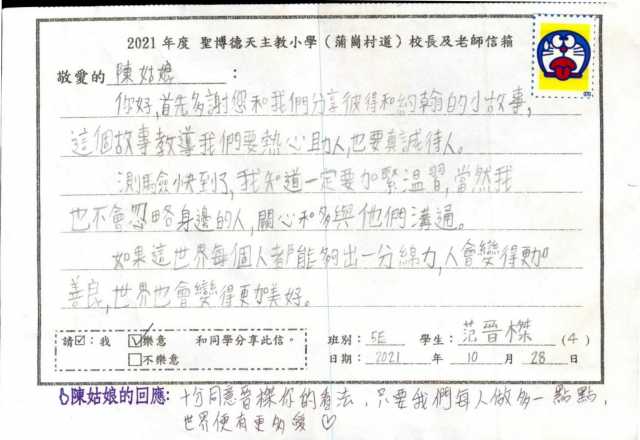 2021 年度 聖博德天主教小學（蒲崗村道）校長及老師信箱
敬愛的 陳姑娘 ：
你好，首先多謝您和我們分享彼得和約翰的小故事，
這個故事教導我們要熱心助人，也要真誠待人。
測驗快到了，我知道一定要加緊溫習，當然我
也不會忽略身邊的人，關心和多與他們溝通。
如果這世界每個人都能夠出一分綿力，人會變得更加
善良，世界也會變得更加美好。
請☑：我 ☑樂意 和同學分享此信。
□不樂意
班別： 5E 學生： 范晉榤 (4)
日期： 2021 年 10 月 28 日
陳姑娘的回應： 十分同意晉榤你的看法，只要我們每人做多一點點，
世界便有更多愛♡